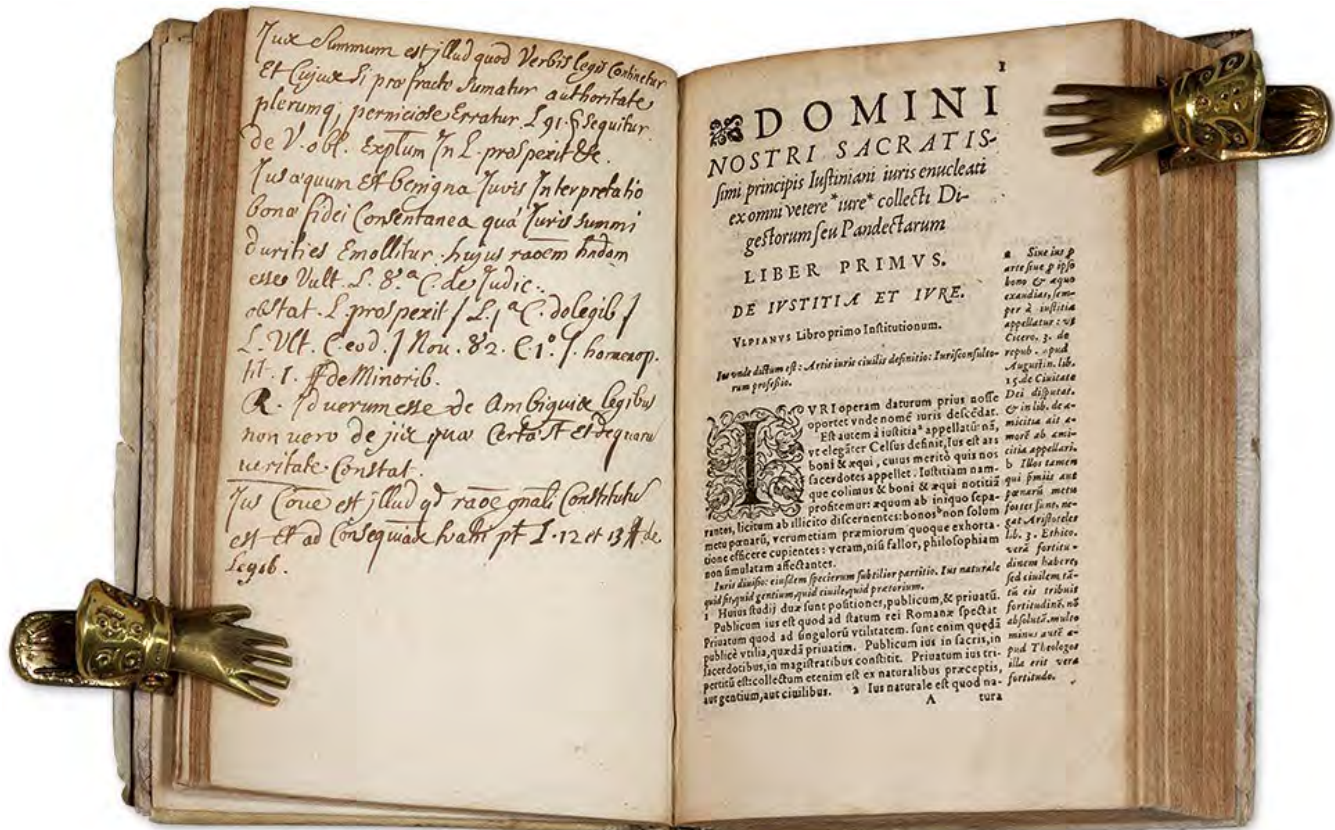 Jux Summum est jllud quod Verbis legis Continetur
Et Cujux Si præfracte Sumatur authoritate
plerumq; perniciose Erratur. L 91. § Sequitur
de V. obl. Explum Jn L. prospexit &c.
Jus æquum Est benigna Juris Jnterpretatio
bonæ fidei Consentanea quâ Juris Summi
durities Emollitur. hujus raõem hñdam
esse Vult. L. 8.ª C. de Judic.
obstat. L. prospexit / L. 1ª C. de legib /
L. Vlt. C. eod. / Nou. 82. C. 1º /
tit. 1. ff de Minorib.
R. Jd uerum esse de Ambiguix legibus
non uero de jix quæ Certa St Et de quaru
ueritate Constat.
Jus Coue est jllud qd raõe gnali Constitutu
est Et ad Consequiax pt L. 12 et 13 ff de
Legib.
1
DOMINI
NOSTRI SACRATIS-
simi principis Iustiniani iuris enucleati
ex omni vetere *iure* collecti Di-
gestorum seu Pandectarum
LIBER PRIMVS.
DE IVSTITIA ET IVRE.
VLPIANVS Libro primo Institutionum.
Ius vnde dictum est: Artis iuris ciuilis definitio: Iurisconsulto-
rum professio.
IVRI operam daturum prius nosse
oportet vnde nomē iuris descēdat.
Est autem à iustitia ᵃ appellatū: nā,
vt elegāter Celsus definit, Ius est ars
boni & æqui, cuius meritò quis nos
sacerdotes appellet. Iustitiam nam-
que colimus & boni & æqui notitiā
profitemur: æquum ab iniquo sepa-
rantes, licitum ab illicito discernentes: bonos ᵇ non solum
metu pœnarū, verumetiam præmiorum quoque exhorta-
tione efficere cupientes: veram, nisi fallor, philosophiam
non simulatam affectantes.
Iuris diuisio: eiusdem specierum subtilior partitio. Ius naturale
quid sit, quid gentium, quid ciuile, quid prætorium.
1 Huius studij duæ sunt positiones, publicum, & priuatū.
Publicum ius est quod ad statum rei Romanæ spectat
Priuatum quod ad singulorū vtilitatem. sunt enim quędā
publicè vtilia, quædā priuatim. Publicum ius in sacris, in
sacerdotibus, in magistratibus constitit. Priuatum ius tri-
pertitū est: collectum etenim est ex naturalibus præceptis,
aut gentium, aut ciuilibus. 2 Ius naturale est quod na-
A tura
a Siue ius p
arte siue p ipso
bono & æquo
exaudias, sem-
per à iustitia
appellatur: vt
Cicero. 3. de
repub. apud
Augustin. lib.
15. de Ciuitate
Dei disputat.
& in lib. de a-
micitia ait a-
morē ab ami-
citia appellari.
b Illos tamen
qui pmiis aut
pœnarū metu
fortes sunt, ne-
gat Aristoteles
lib. 3. Ethico.
verā fortitu-
dinem habere,
sed ciuilem tā-
tū eis tribuit
fortitudinē, nō
absolutā. multo
minus autē a-
pud Theologos
illa erit vera
fortitudo.